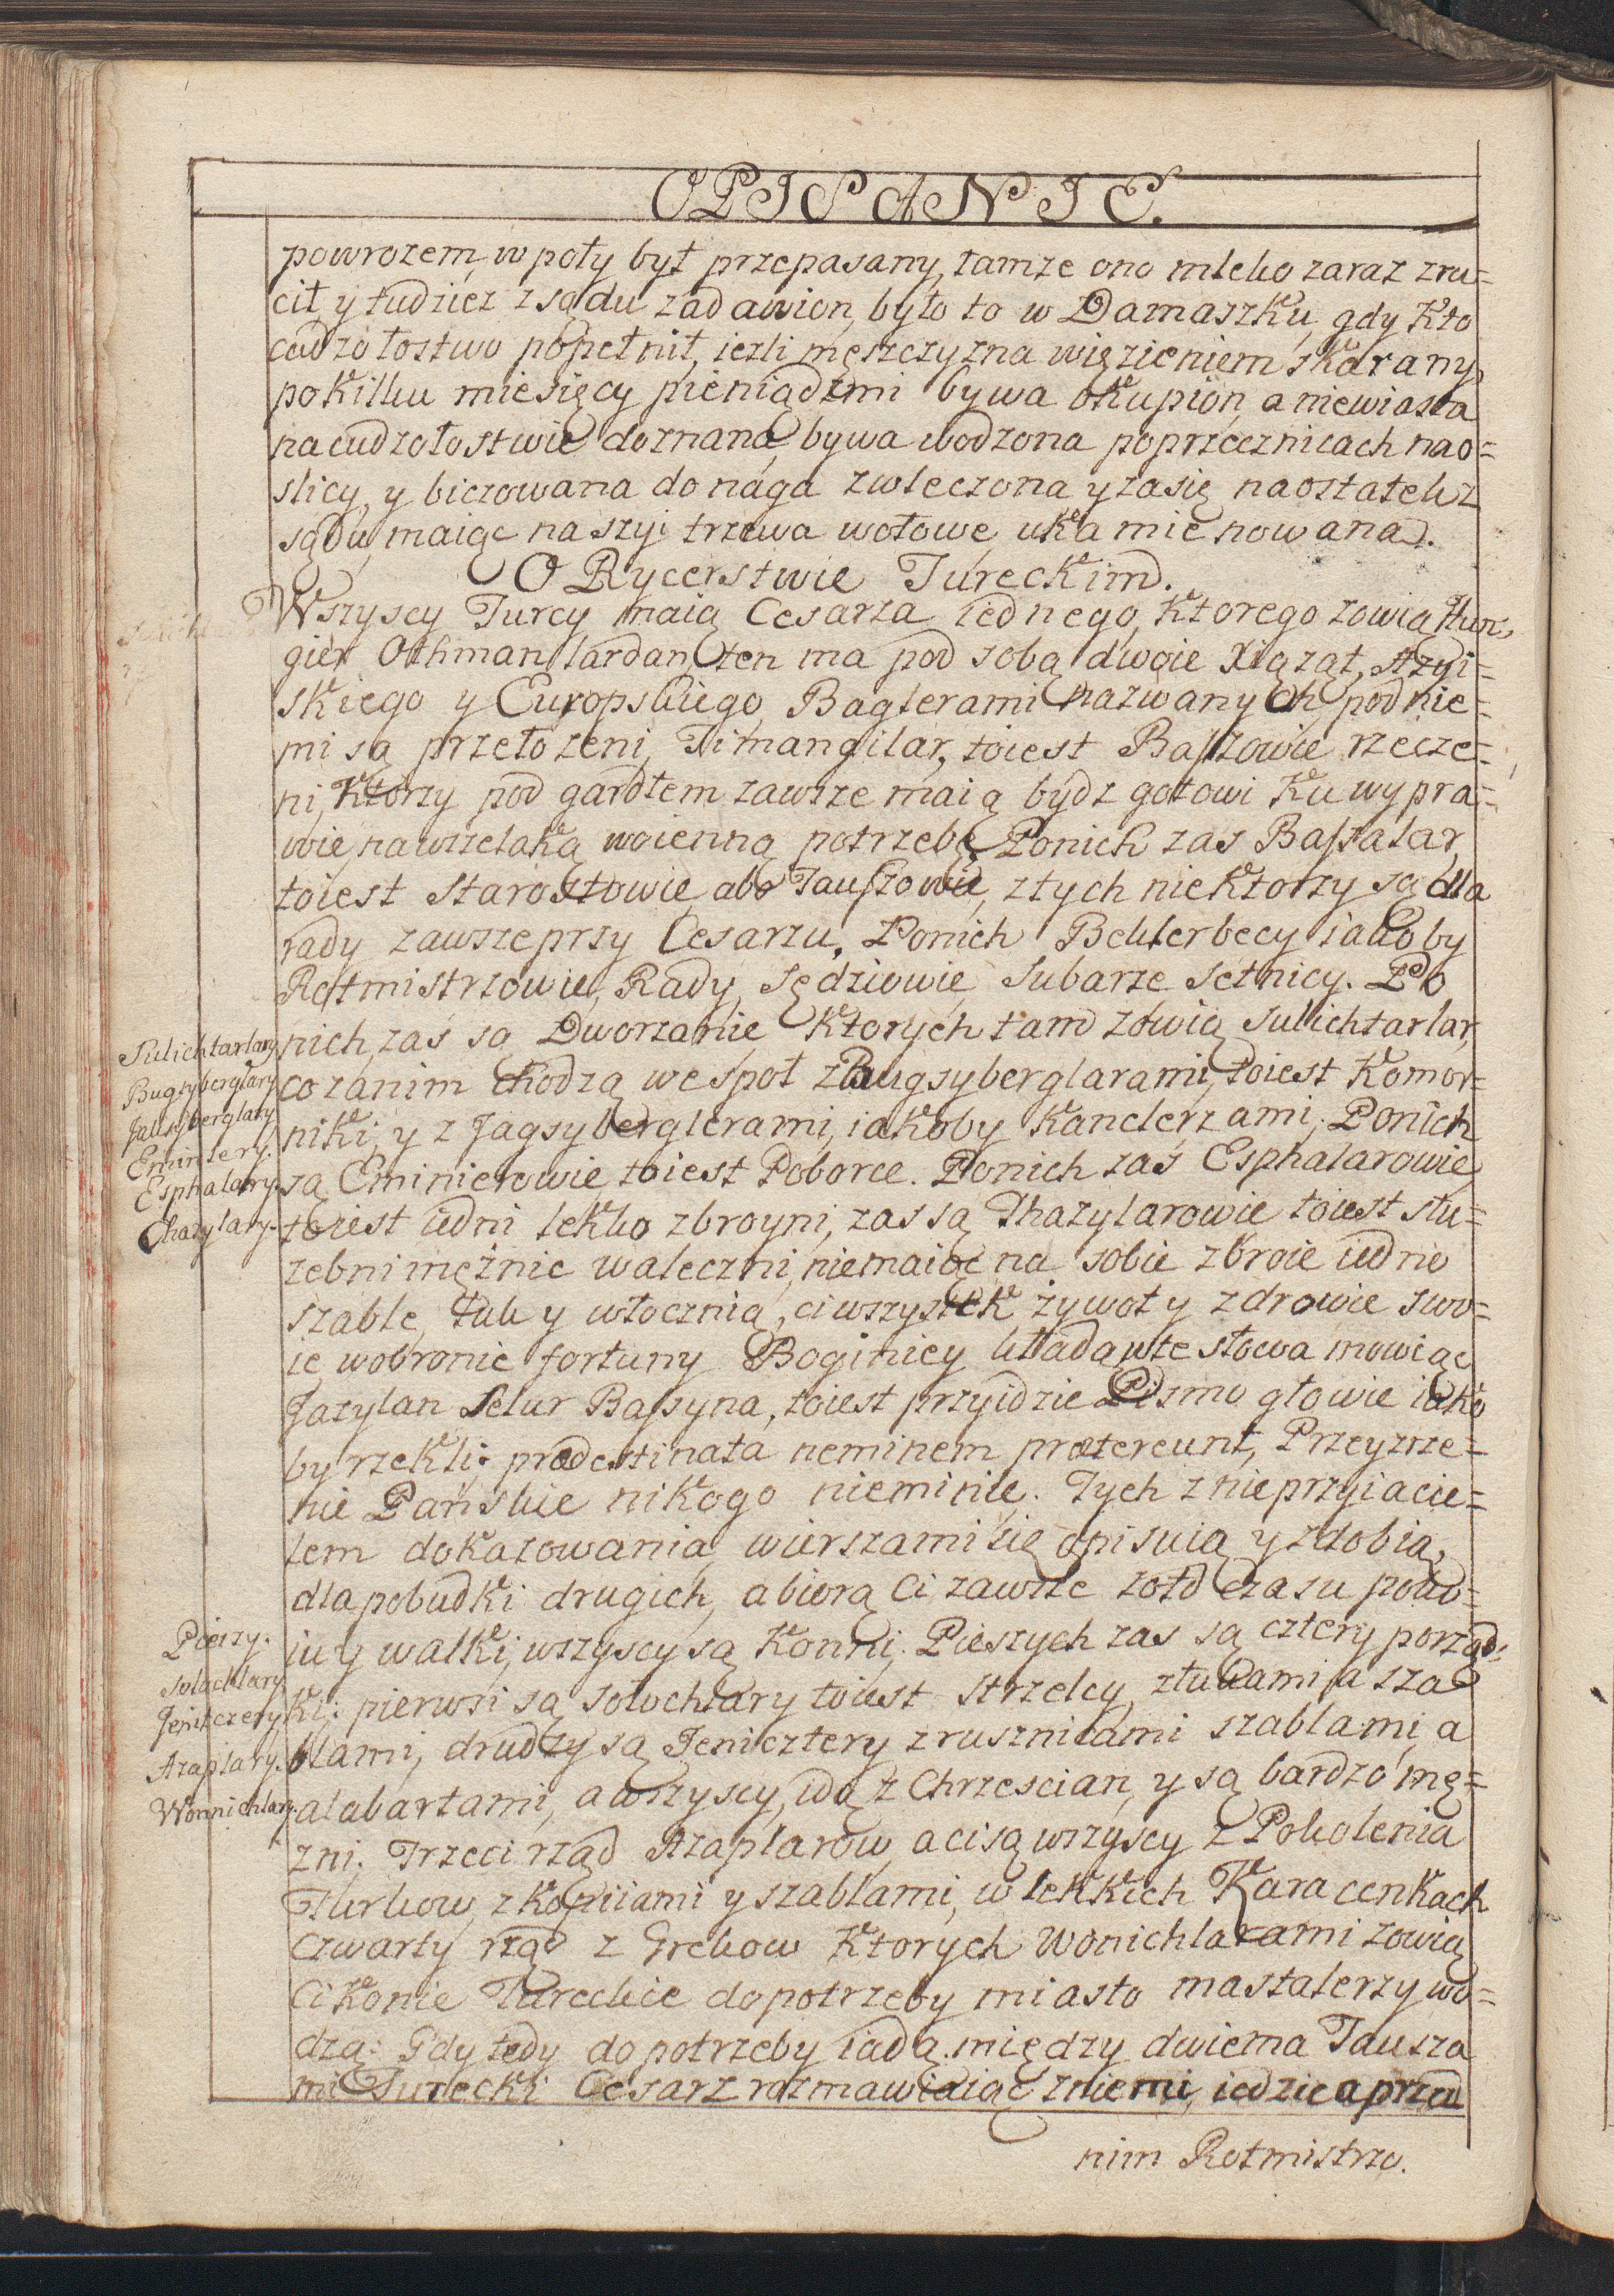 OPISANIE.
powrozem, w poły był przepasany, tamze ono mleko zaraz zru=
cił, y tudziez z sądu zadawion, było to w Damaszku, gdy kto
cudzołostwo popełnił, iezli męszczyzna więzieniem skarany,
po kilku miesięcy pieniądzmi bywa okupion, a niewiasta
na cudzołostwie doznana bywa wodzona po przecznicach na o=
slicy, y biczowana do naga zwleczona y zasię na ostatek z
sądu, maiąc na szyi trzewa wołowe, ukamienowana.
O Rycerstwie Tureckim.
Wszyscy Turcy maią Cesarza iednego, ktorego zowią Hun,
gier Othman lardan, ten ma pod sobą dwoie Xiąząt, Azyi=
skiego y Europskiego, Baglerami nazwanych, pod nie=
mi są przełozeni, Timangilar, toiest Baszowie rzecze=
ni, ktorzy pod gardłem zawsze maią bydz gotowi ku wypra=
wie na wszelaką woienną potrzebę. Po nich zas Bassalar,
toiest Starostowie abo Taussowie, z tych niektorzy są dla
rady zawsze przy Cesarzu. Po nich Beklerbecy iakoby
Rotmistrzowie, Rady, Sędziowie, Subarze setnicy. Po
nich zas są Dworzanie ktorych tam zowią Sulichtarlar,
co za nim chodzą wespoł z Bugsyberglarami, toiest Komor=
niki, y z Jagsyberglerami, iakoby Kanclerzami, Po nich
są Eminierowie, toiest Poborce. Po nich zaś Esphalarowie,
toiest iedni lekko zbroyni, zas są Thazylarowie toiest słu=
zebni mężnie waleczni, nie maiąc na sobie zbroie iedno
szable, łuk y włocznią, ci wszystek żywot y zdrowie swo=
ie w obronie fortuny Boginiey kładą, w te słowa mowiąc
Jazylan Selur Bassyna, toiest przyidzie Pismo głowie iako
by rzekli: prædestinata neminem prætereunt, Przeyzrze=
nie Pańskie nikogo nie minie. Tych z nieprzyiacie=
lem dokazowania, wierszami się opisuią y zdobią,
dla pobudki drugich, a biorą Ci zawsze zołd czasu poko=
iu y walki, wszyscy są konni. Pieszych zas są cztery porząd,
ki: pierwsi są Solochlary toiest Strzelcy, z łukami, a sza
blami, drudzy są Jenicztery z rusznicami szablami, a
alabartami, a wszyscy, idą z Chrzescian, y są bardzo mę=
zni. Trzeci rząd Azaplarow, a ci są wszyscy z Pokolenia
Turkow, z kopiiami y szablami, w lekkich Karacenkach
czwarty rząd z Grekow ktorych Wonichlarami zowią
Ci konie Tureckie do potrzeby miasto masztalerzy wo=
dzą: Gdy tedy do potrzeby iadą, między dwiema Tausza
mi Turecki Cesarz rozmawiaiąc z niemi, iedzie a przed
nim Rotmistrzo.
Sulichtarlary
Bugsyberglary
Jausyberglary
Eminlery.
Esphalary.
Chazylary.
Pieszy.
Solochlary
Jenitczery
Azaplary.
Wonnichlary.